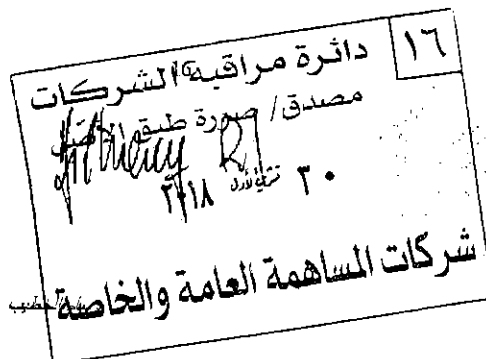 ١٦
دائرة مراقبة الشركات
مصدق / صورة طبق الأصل
٣٠ تشرين الأول ٢٠١٨
شركات المساهمة العامة والخاصة